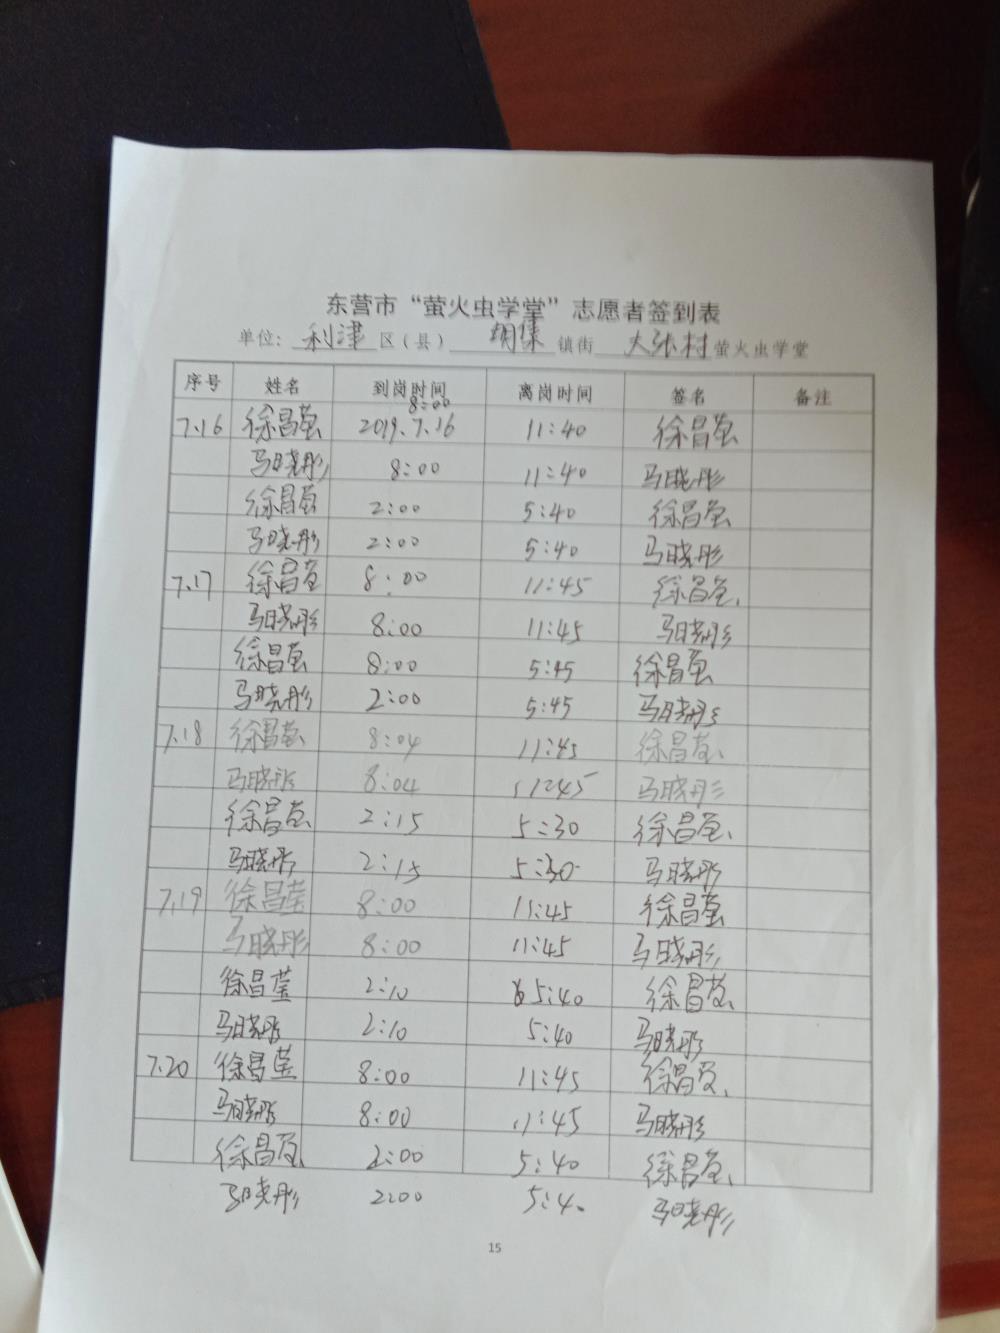 东营市“萤火虫学堂”志愿者签到表
单位：利津区（县）胡集镇街大张村萤火虫学堂
序号 姓名 到岗时间 离岗时间 签名 备注
8:00
7.16 徐昌莹 2019.7.16 11:40 徐昌莹
马晓彤 8:00 11:40 马晓彤
徐昌莹 2:00 5:40 徐昌莹
马晓彤 2:00 5:40 马晓彤
7.17 徐昌莹 8:00 11:45 徐昌莹
马晓彤 8:00 11:45 马晓彤
徐昌莹 8:00 5:45 徐昌莹
马晓彤 2:00 5:45 马晓彤
7.18 徐昌莹 8:04 11:45 徐昌莹
马晓彤 8:04 11:45 马晓彤
徐昌莹 2:15 5:30 徐昌莹
马晓彤 2:15 5:30 马晓彤
7.19 徐昌莹 8:00 11:45 徐昌莹
马晓彤 8:00 11:45 马晓彤
徐昌莹 2:10 5:40 徐昌莹
马晓彤 2:10 5:40 马晓彤
7.20 徐昌莹 8:00 11:45 徐昌莹
马晓彤 8:00 11:45 马晓彤
徐昌莹 2:00 5:40 徐昌莹
马晓彤 2:00 5:40 马晓彤
15